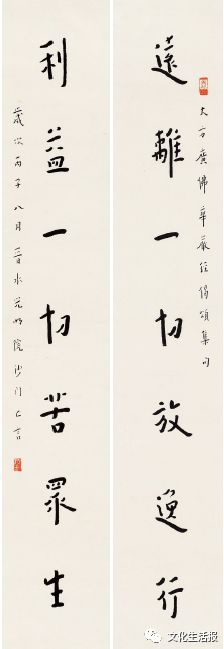 大方廣佛華嚴經偈頌集句
遠離一切放逸行
利益一切苦眾生
歲次丙子八月晉水光明院沙門亡言
文化生活报